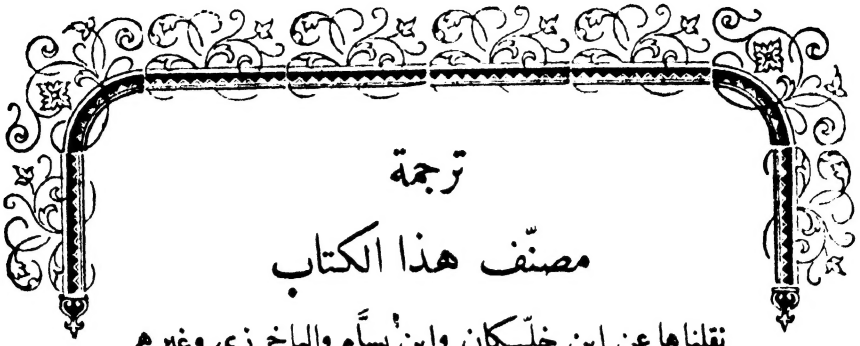 ترجمة
مصنّف هذا الكتاب
نقلناها عن ابن خلّكان وابن بسَّام والباخرزي وغيرهم